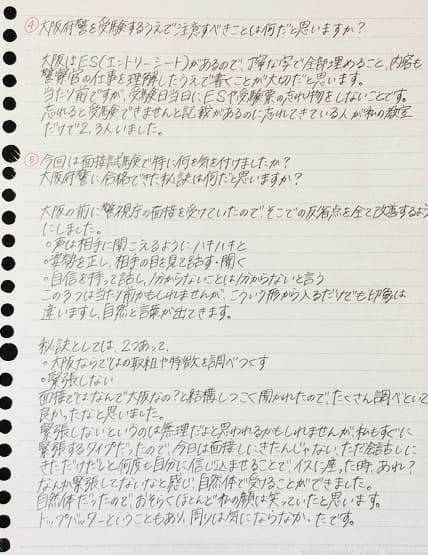 ④大阪府警を受験するうえで注意すべきことは何だと思いますか?
大阪はES(エントリーシート)があるので、丁寧な字で全部埋めること、内容も
警察官の仕事を理解したうえで書くことが大切だと思います。
当たり前ですが、受験日当日にESや受験票の忘れ物をしないことです。
忘れると受験できませんと記載があるのに忘れてきている人が私の教室
だけで2,3人いました。
⑤今回は面接試験で特に何を気を付けましたか?
大阪府警に合格できた秘訣は何だと思いますか?
大阪の前に警視庁の面接を受けていたので、そこでの反省点を全て改善するよう
にしました。
○声は相手に聞こえるようにハキハキと
○姿勢を正し、相手の目を見て話す・聞く
○自信を持って話し、分からないことは分からないと言う
この3つは当たり前かもしれませんが、こういう形から入るだけでも印象は
違いますし、自然と言葉が出てきます。
秘訣としては、2つあって、
○大阪ならではの取組や特徴を調べつくす
○緊張しない
面接ではなんで大阪なの?と結構しつこく聞かれたので、たくさん調べといて
良かったなと思いました。
緊張しないというのは無理だよと思われるかもしれませんが、私もすぐに
緊張するタイプだったので、今日は面接しにきたんじゃない、ただ会話しに
きただけだしと何度も自分に信じ込ませることで、イスに座った時、あれ?
なんか緊張してないなと感じ、自然体で受けることができました。
自然体だったので、おそらくほとんど私の顔は笑っていたと思います。
トップバッターということもあり、周りは気にならなかったです。